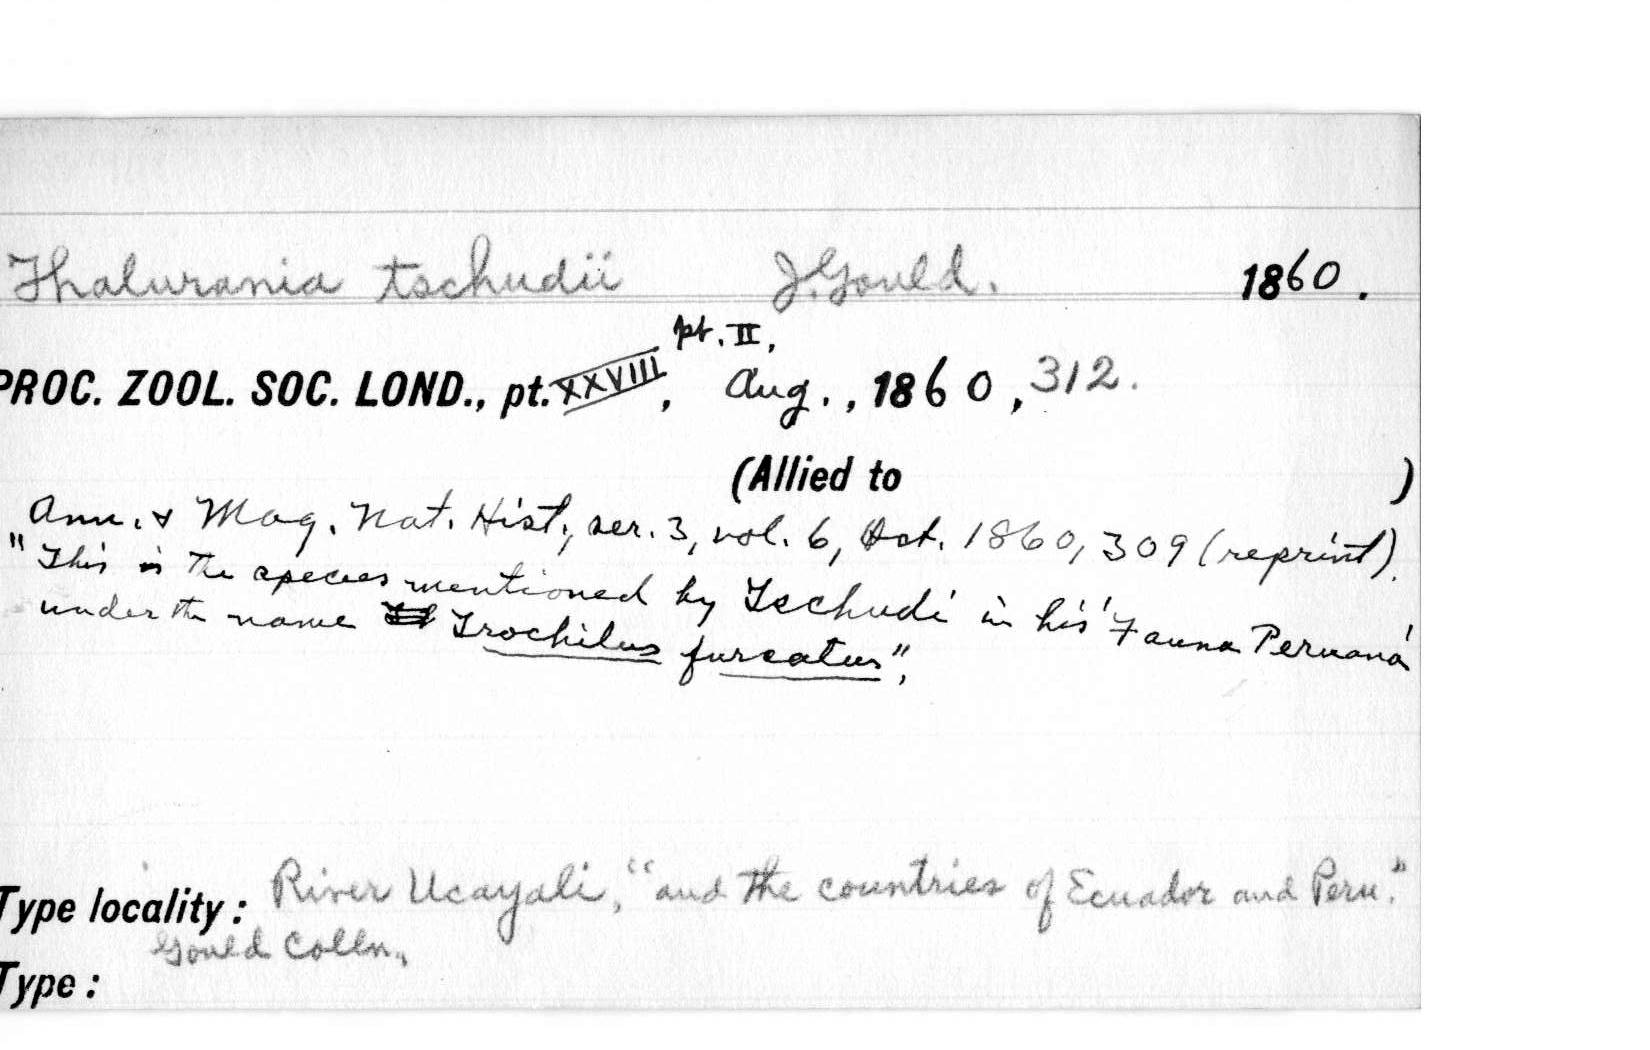 Thalurania tschudii J. Gould. 1860.
pt. II,
PROC. ZOOL. SOC. LOND., pt. XXVIII, Aug., 1860, 312.
(Allied to )
Ann. & Mag. Nat. Hist., ser. 3, vol. 6, Oct. 1860, 309 (reprint).
"This is the species mentioned by Tschudi in his 'Fauna Peruana'
under the name Trochilus furcatus".
Type locality: River Ucayali, "and the countries of Ecuador and Peru."
Gould Colln.
Type: